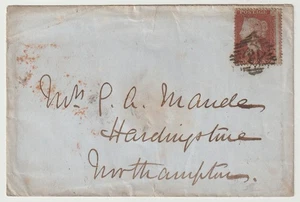 Mrs P. A. Maude
Hardingstone
Northampton.